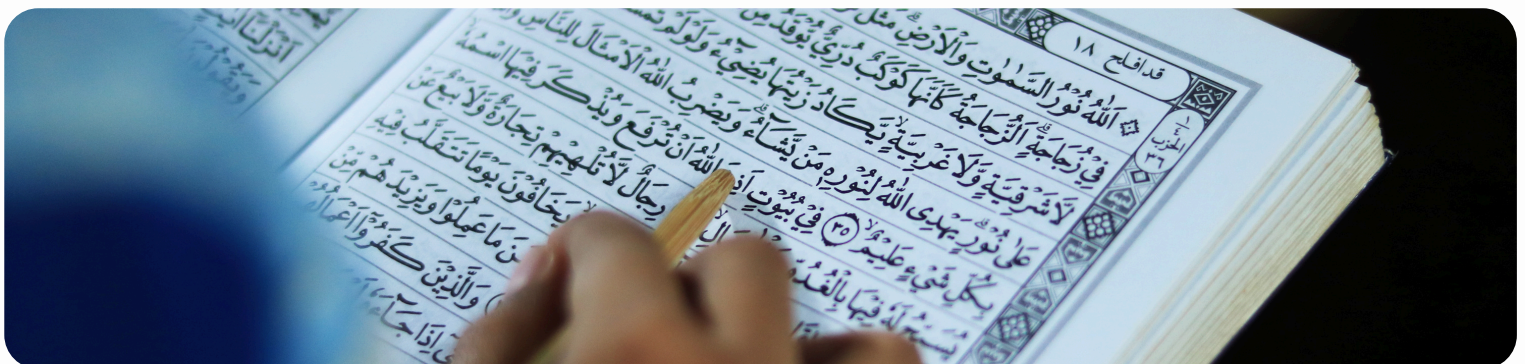 قد افلح ١٨
الحزب ٣٦
۞ اَللّٰهُ نُوْرُ السَّمٰوٰتِ وَالْاَرْضِ ۗ مَثَلُ
فِيْ زُجَاجَةٍ ۗ اَلزُّجَاجَةُ كَاَنَّهَا كَوْكَبٌ دُرِّيٌّ يُّوْقَدُ مِنْ
لَّا شَرْقِيَّةٍ وَّلَا غَرْبِيَّةٍ ۙ يَّكَادُ زَيْتُهَا يُضِيْۤءُ وَلَوْ لَمْ
عَلٰى نُوْرٍ ۗ يَهْدِى اللّٰهُ لِنُوْرِهٖ مَنْ يَّشَاۤءُ ۗ وَيَضْرِبُ اللّٰهُ الْاَمْثَالَ لِلنَّاسِ
بِكُلِّ شَيْءٍ عَلِيْمٌ ۙ ٣٥ فِيْ بُيُوْتٍ اَذِنَ اللّٰهُ اَنْ تُرْفَعَ وَيُذْكَرَ فِيْهَا اسْمُهٗ
يُسَبِّحُ لَهٗ فِيْهَا بِالْغُدُوِّ رِجَالٌ لَّا تُلْهِيْهِمْ تِجَارَةٌ وَّلَا بَيْعٌ عَنْ
يَخَافُوْنَ يَوْمًا تَتَقَلَّبُ فِيْهِ
مَا عَمِلُوْا وَيَزِيْدَهُمْ مِّنْ
وَالَّذِيْنَ كَفَرُوْٓا
اِذَا جَاۤءَ
اَنْزَلْنَا